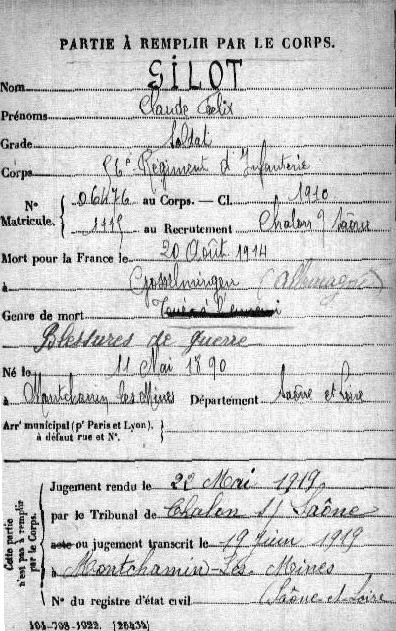 PARTIE À REMPLIR PAR LE CORPS.
Nom GILOT
Prénoms Claude Felix
Grade Soldat
Corps 56e Régiment d'Infanterie
N° Matricule. { 06476 au Corps. — Cl. 1910
1115 au Recrutement Chalon s/ Saône
Mort pour la France le 20 Août 1914
à Gosselmingen (Allemagne)
Genre de mort Tué à l'ennemi
Blessures de guerre
Né le 11 Mai 1890
à Montchanin les Mines Département Saône et Loire
Arrt municipal (pr Paris et Lyon),
à défaut rue et N°.
Cette partie n'est pas à remplir par le Corps.
Jugement rendu le 22 Mai 1919
par le Tribunal de Chalon s/ Saône
acte ou jugement transcrit le 19 Juin 1919
à Montchanin-Les-Mines
N° du registre d'état civil Saône et Loire
101-708-1922. [26434]